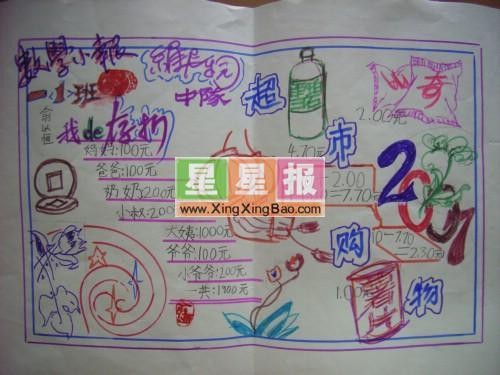 數學小報
一.1班
中隊
我de存折
妈妈:100元
爸爸:100元
奶奶200元
小叔:200
大姨:1000元
爷爷:100元
小爷爷:200元
一共:1900元
超市购物
2.00元
4.70元
-2.00
-7.70元
10-7.70
=2.30元
1.00元
山奇
星星报
www.XingXingBao.com